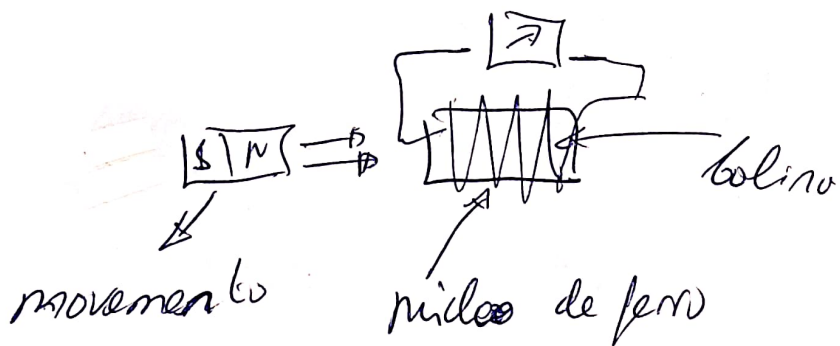 S N
bolina
movemento
núcleo de ferro